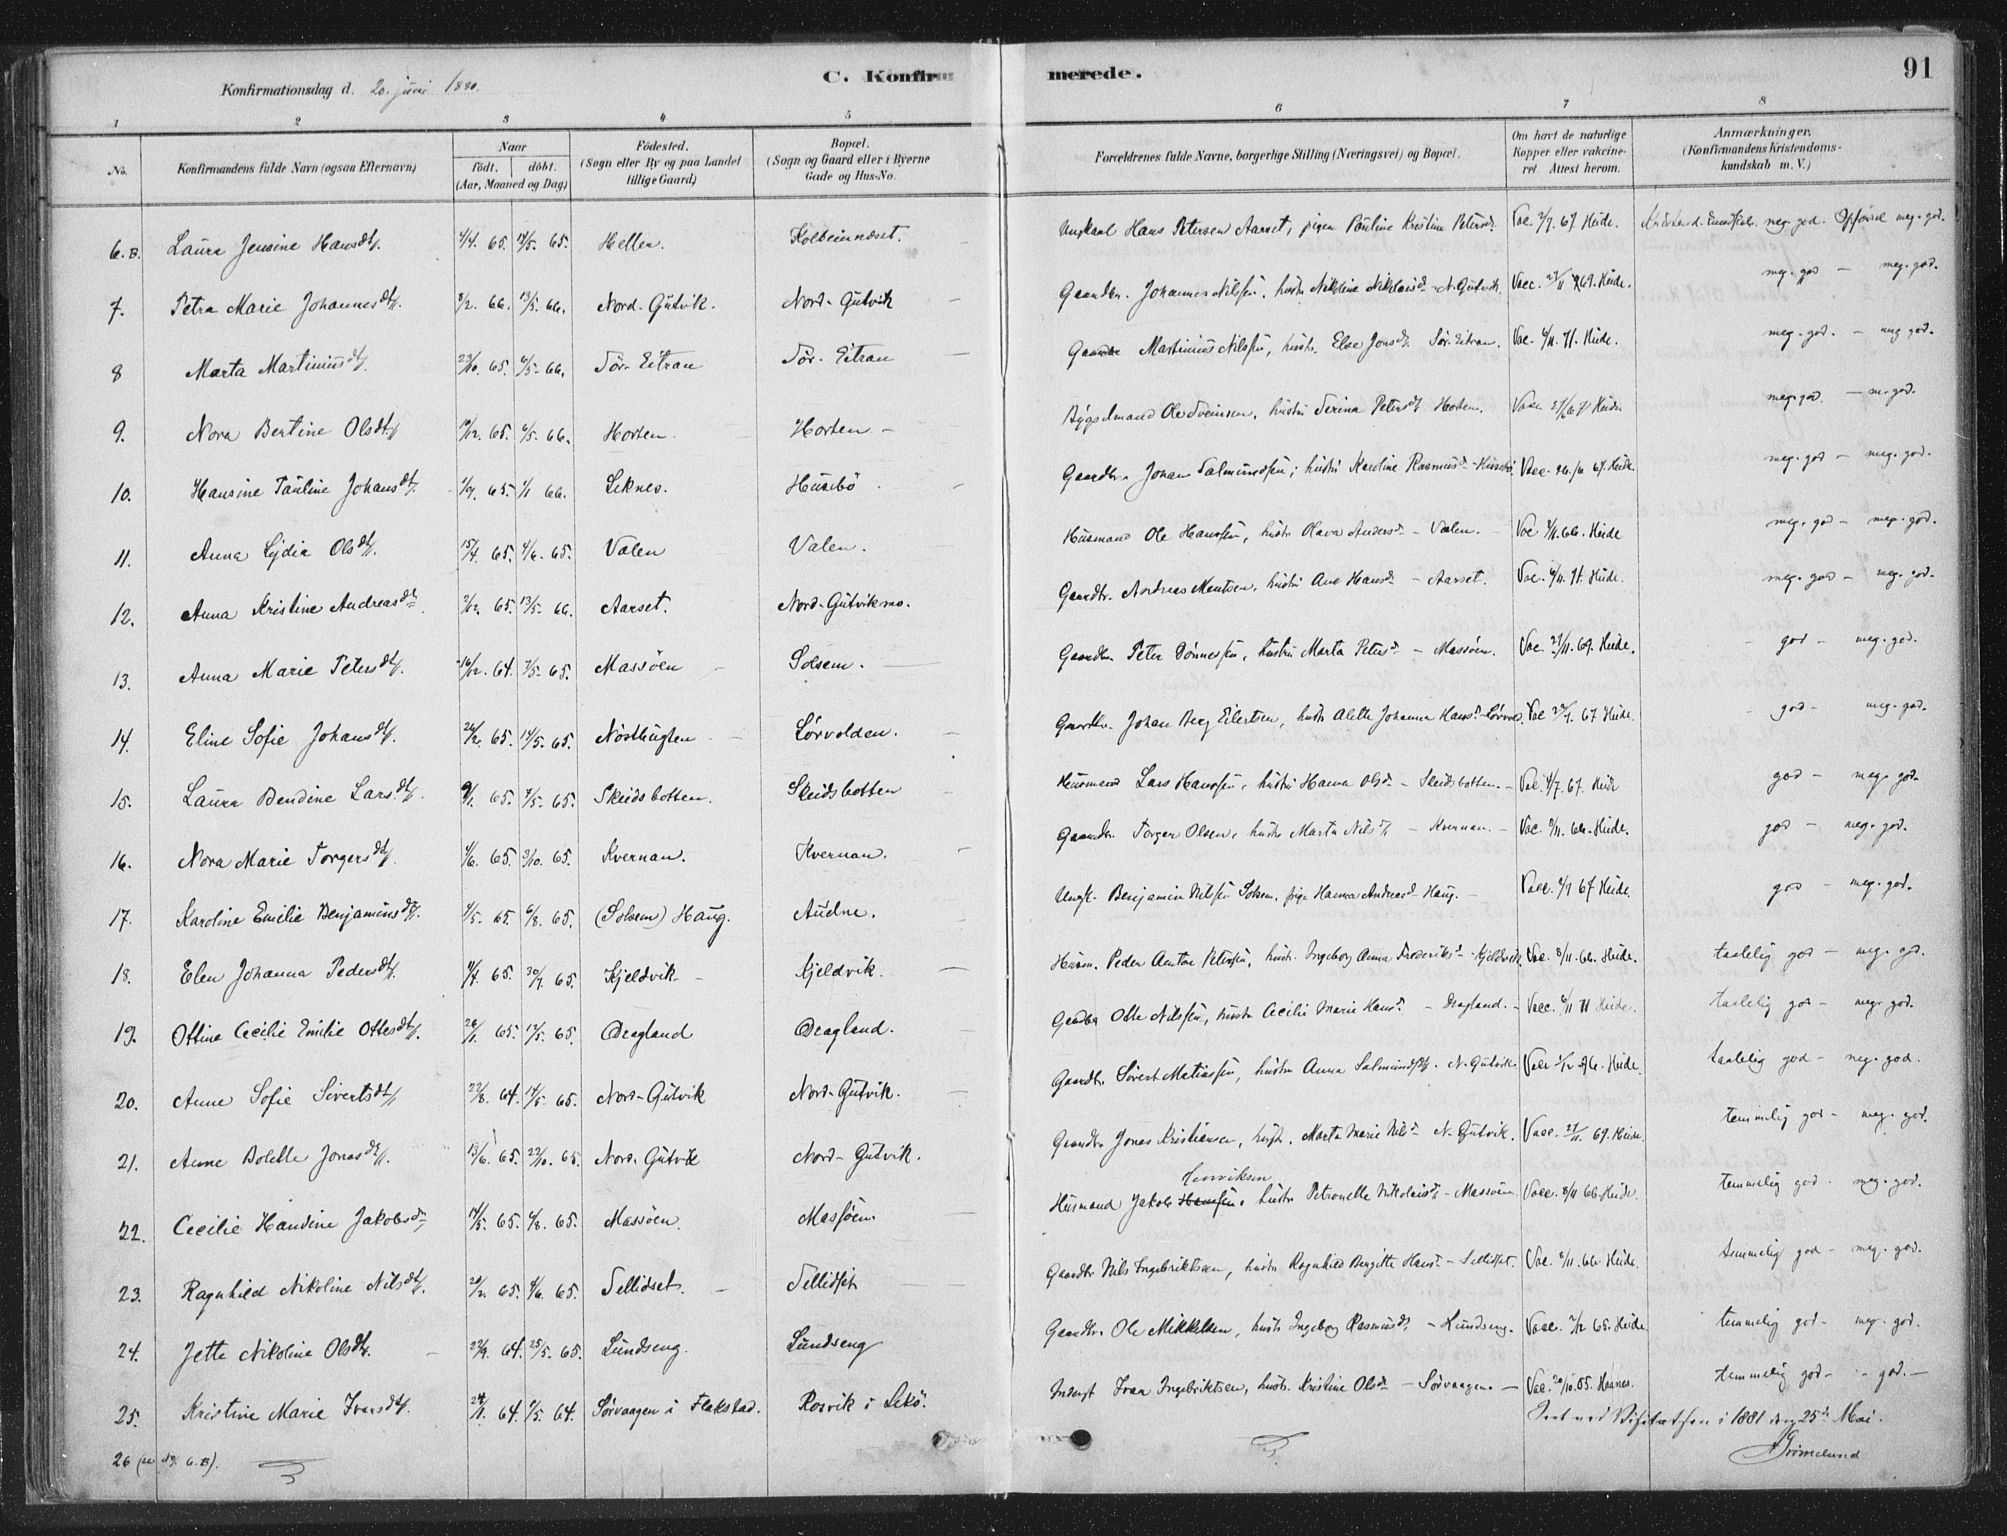 Konfirmationsdag d. 20. juni 1880.
C. Konfirmerede.
91
1 2 3 4 5 6 7 8
No. Konfirmandens fulde Navn (ogsaa Efternavn) Naar födt. döbt. (Aar, Maaned og Dag) Födested. (Sogn eller By og paa Landet tillige Gaard) Bopæl. (Sogn og Gaard eller i Byerne Gade og Hus-No. Forældrenes fulde Navne, borgerlige Stilling (Næringsvei) og Bopæl. Om havt de naturlige Kopper eller vakcineret. Attest herom. Anmærkninger. (Konfirmandens Kristendomskundskab m. V.)
6.B. Laura Jensine Hansdtr. 4/4. 65. 14/5. 65. Hellen. Kolbeinnæset. Ungkarl Hans Petersen Aarset, pigen Pauline Kristine Petersd. Vac. 2/7. 67. Heide. meg. god. Opførsel meg. god.
7. Petra Marie Johannesdtr. 2/2. 66. 13/5. 66. Nord. Gutvik. Nord. Gutvik Gaardbr. Johannes Nilssen, hustr. Nikoline Nikolaisd. N. Gutvik. Vacc. 27/11 69. Heide. meg. god — meg. god.
8 Marta Martinusdtr. 23/10. 65. 6/5. 66. Sör. Eitran Sör. Eitran Gaardbr Martinus Nilssen, hustr. Else Jonsd. Sör. Eitran. Vac. 6/11. 71. Heide. meg. god. — meg god.
9. Nora Bertine Olsdtr 10/12. 65. 6/5. 66. Horten. Horten — Bygselmand Ole Sveinsen, hustru Serina Petersdtr Horten. Vacc Heide meg. god. — m. god.
10. Hansine Pauline Johansdtr. 65. 1/1 66. Leknes. Husebö. Gaardbr. Johan Salmundssen, hustru Karoline Rasmusd. Husebö. Vacc. 26/10 67. Heide. meg. god — meg. god.
11. Anna Lydia Olsdtr. 15/4. 65. 4/6. 65. Valen Valen. Husmand Ole Hanssen, hustr Olava Andersd. — Valen. Vac 8/11. 66. Heide meg. god — meg. god.
12. Anna Kristine Andreasdtr. 2/12. 65. 13/5. 66. Aarset. Nord-Gutvikmo. Gaardbr. Andreas Mentsen, hustru Ane Hansd. — Aarset. Vac. 6/11. 71. Heide. meg. god — meg. god.
13. Anna Marie Petersdtr. 16/12. 64. 7/5. 65. Massöen Solsem. Gaardbr. Peter Dönnessen, hustru Marta Petersd. — Massöen. Vac. 27/11. 69. Heide. god — meg. god.
14. Eline Sofie Johansdtr. 26/2. 65. 14/5. 65. Nösthugten Lörvolden. Gaardbr. Johan Berg Eilertsen, hustr Alette Johanna Hansd. Vac 67 Heide. god — meg. god.
15. Laura Bendine Larsdtr. 9/1. 65. 7/5. 65. Skeidsbotten. Skeidsbotten Husmand Lars Hanssen, hustru Hanna Olsd. — Skeidsbotten. Vac. 4/7. 67. Heide god — meg. god.
16. Nora Marie Torgersdtr. 4/6. 65. 3/10. 65. Kvernan. Kvernan. Gaardbr. Torger Olsen, hustr Marta Nilsd. — Kvernan. Vac. 8/11. 66. Heide. god — meg. god.
17. Karoline Emilie Benjaminsdtr. 4/5. 65. 6/8. 65. (Solsem) Haug. Audne. Ungk. Benjamin Nilssen Solsem, pige Hanna Andreasd. Haug. Vacc. 4/7 67 Heide. god — meg. god.
18. Elen Johanna Pedersdtr. 4/4. 65. 30/7. 65. Kjeldvik. Kjeldvik. Husm. Peder Anton Petersen, hustr. Ingeborg Anna Frederiksd. — Kjeldvik. Vac. 8/11. 66. Heide. taalelig god — meg. god.
19. Ottine Cecilie Emilie Ottesdtr. 26/1. 65. 12/5. 65. Dragland Dragland. Gaardbr Otte Nilssen, hustr Cecilie Marie Hansd. — Dragland. Vacc. 6/11 71 Heide. taalelig god — meg. god.
20. Anne Sofie Sivertsdtr. 22/8. 64. 14/5. 65. Nord-Gutvik Nord-Gutvik. Gaardbr. Sivert Matiassen, hustr Anna Salmundsdtr. N. Gutvik. Vacc Heide. taalelig god — meg. god.
21. Anne Bolette Jonasdtr. 13/6. 65. 22/10. 65. Nord. Gutvik Nord-Gutvik. Gaardbr Jonas Kristiansen, hustr. Marta Marie Nilsd. N. Gutvik. Vacc. 27/11. 69. Heide. temmelig god — meg. god.
Henriksen
22. Cecilie Handine Jakobsdr. 14/5. 65. 6/8. 65. Massöen. Massöen. Husmand Jakob Hanssen, hustr Petronelle Nikolaisdtr — Massöen. Vacc. 8/11 66. Heide. temmelig god. meg. god.
23. Ragnhild Nikoline Nilsdtr. 24/2. 65. 4/6. 65. Sellidset. Sellidset Gaardbr Nils Ingebriktsen, hustr Ragnhild Bergitte Hansd. — Sellidset. Vac. 8/11. 66. Heide. temmelig god — meg. god.
24. Jette Nikoline Olsdtr. 22/9. 64. 25/5. 65. Lundseng. Lundseng Gaardbr. Ole Mikkelsen, hustr Ingeborg Rasmusdtr — Lundseng. Vacc. 65. Heide. temmelig god — meg. god.
25. Kristine Marie Ivarsdtr. 24/1. 64. 7/5. 64. Sörvaagen i Flakstad. Rosvik i Lekö. Inderst Ivar Ingebriktsen, hustr. Kristine Olsd. — Sörvaagen. — Vac. 20/10. 65. temmelig god — god. —
Seet ved Visitatsen i 1881 den 25de Mai.
Grimelund
26 (se No. 6.B).